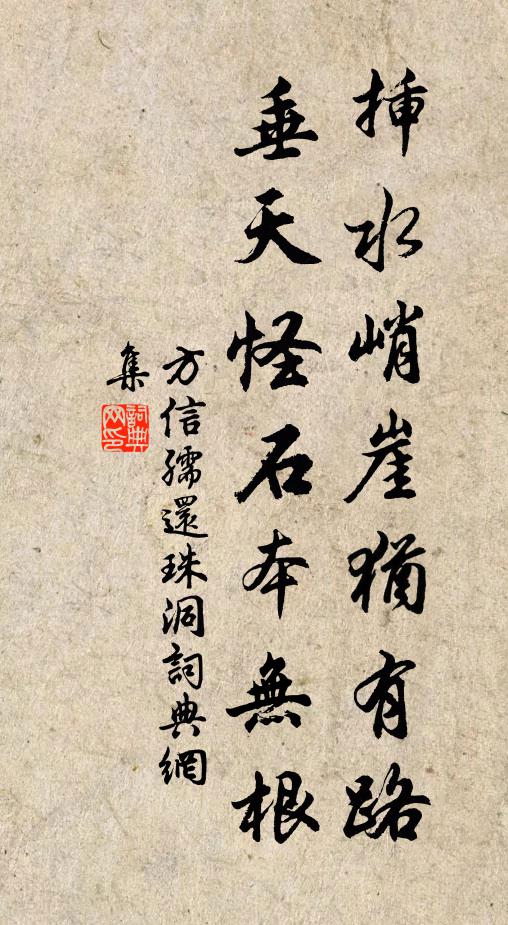 挿水峭崖猶有路
垂天怪石本無根
方信孺還珠洞詞典網
集
詞典
网印